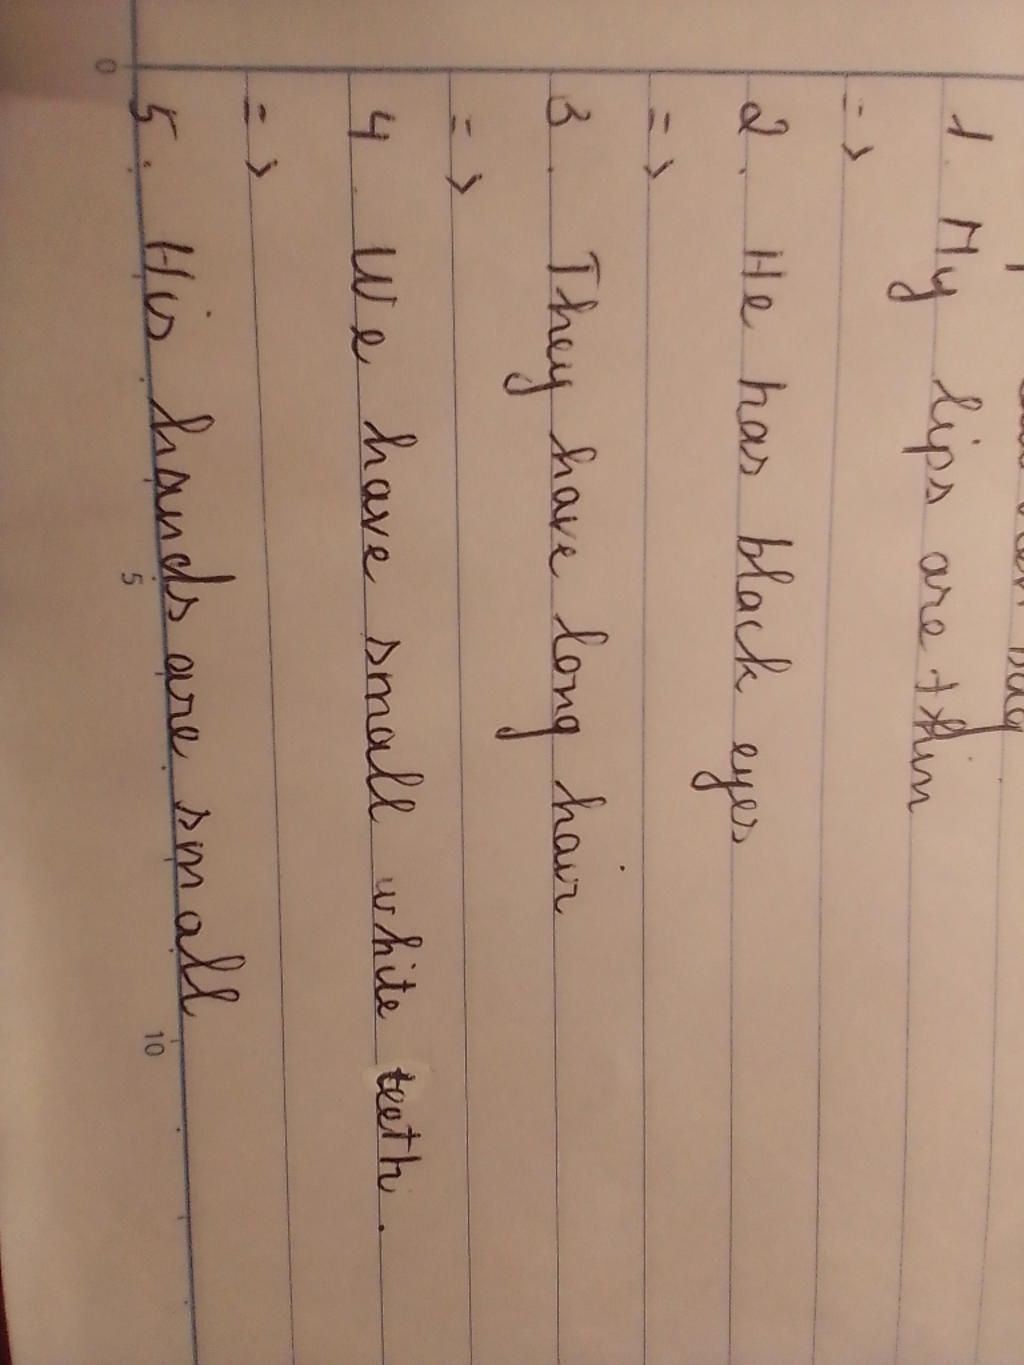 1. My lips are thin
=>
2. He has black eyes
=>
3. They have long hair
=>
4. We have small white teeth.
=>
5. His hands are small
0 5 10